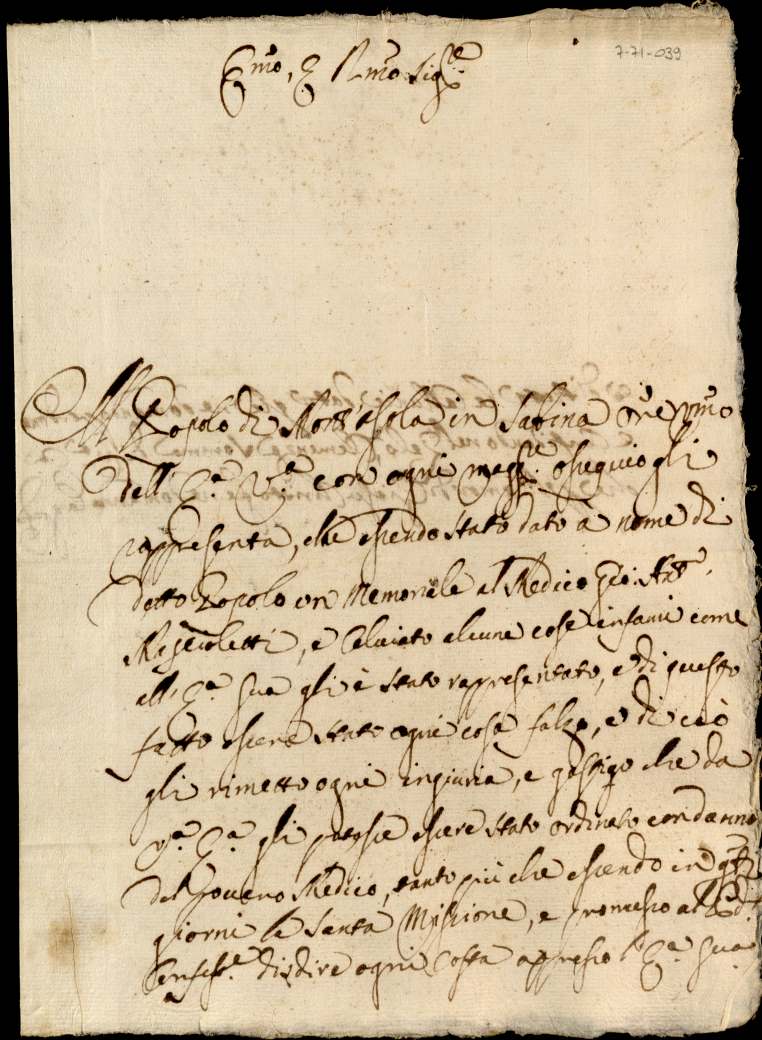 7-71-039
Em͂o, e Rm͂o Sig.re
Il Popolo di Mont'Asola in Sabina
dell' E.a V.a con ogni magg.re osequio gli
rappresenta, che essendo stato dato à nome di
detto Popolo un Memoriale al Medico Gio: Ant.o
e alcune cose infami come
all' E.a Sua gli è stato rappresentato, e di questo
fatto essere stato ogni cosa falzo, e di ciò
gli rimetto ogni ingiuria, e gastigo che da
V.a E.a gli potesse essere stato ordinato con danno
del povero Medico, tanto più che essendo in
giorni la Santa Missione, e promesso al
di dire ogni cossa appresso l'E.a Sua